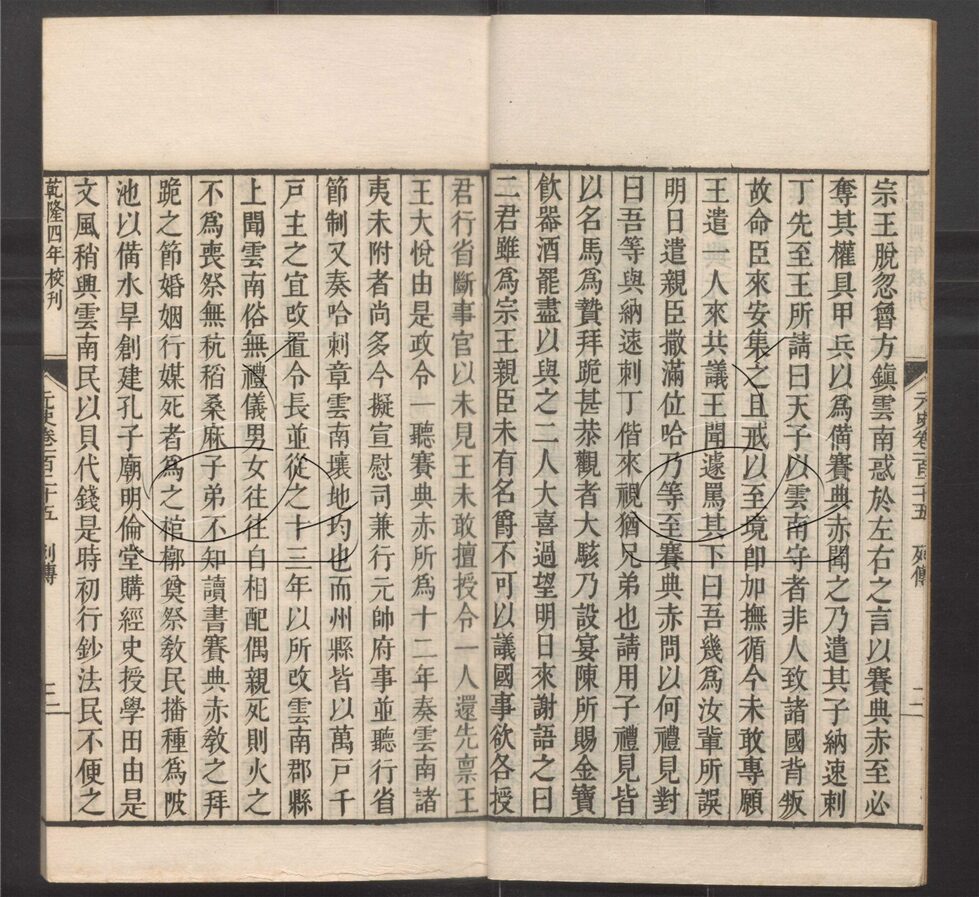 宗王脫忽魯方鎮雲南惑於左右之言以賽典赤至必
奪其權具甲兵以爲備賽典赤聞之乃遣其子納速剌
丁先至王所請曰天子以雲南守者非人致諸國背叛
故命臣來安集之且戒以至境卽加撫循今未敢專願
王遣一人來共議王聞遽罵其下曰吾幾爲汝輩所誤
明日遣親臣撒滿位哈乃等至賽典赤問以何禮見對
曰吾等與納速剌丁偕來視猶兄弟也請用子禮見皆
以名馬爲贄拜跪甚恭觀者大駭乃設宴陳所賜金寶
飲器酒罷盡以與之二人大喜過望明日來謝語之曰
二君雖爲宗王親臣未有名爵不可以議國事欲各授
君行省斷事官以未見王未敢擅授令一人還先禀王
王大悅由是政令一聽賽典赤所爲十二年奏雲南諸
夷未附者尚多今擬宣慰司兼行元帥府事並聽行省
節制又奏哈剌章雲南壤地均也而州縣皆以萬戸千
戸主之宜改置令長並從之十三年以所改雲南郡縣
上聞雲南俗無禮儀男女往往自相配偶親死則火之
不爲喪祭無秔稻桑麻子弟不知讀書賽典赤教之拜
跪之節婚姻行媒死者爲之棺槨奠祭教民播種爲陂
池以備水旱創建孔子廟明倫堂購經史授學田由是
文風稍興雲南民以貝代錢是時初行鈔法民不便之
乾隆四年校刊
元史卷一百二十五 列傳
二